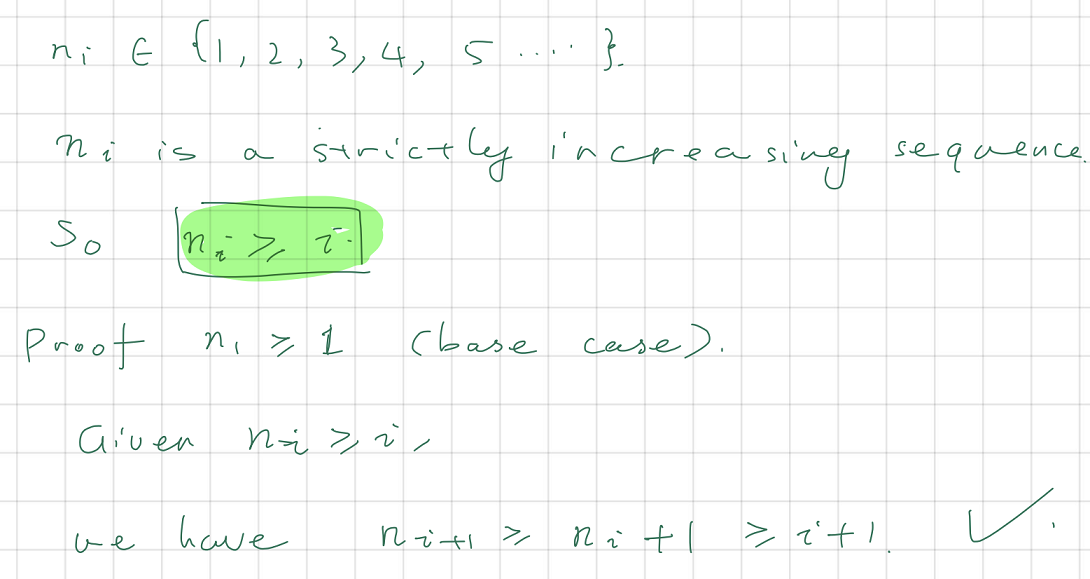 nᵢ ∈ {1, 2, 3, 4, 5 ····}.
nᵢ is a strictly increasing sequence.
So nᵢ ⩾ i.
Proof n₁ ⩾ 1 (base case).
Given nᵢ ⩾ i,
we have nᵢ₊₁ ⩾ nᵢ + 1 ⩾ i + 1. ✓.